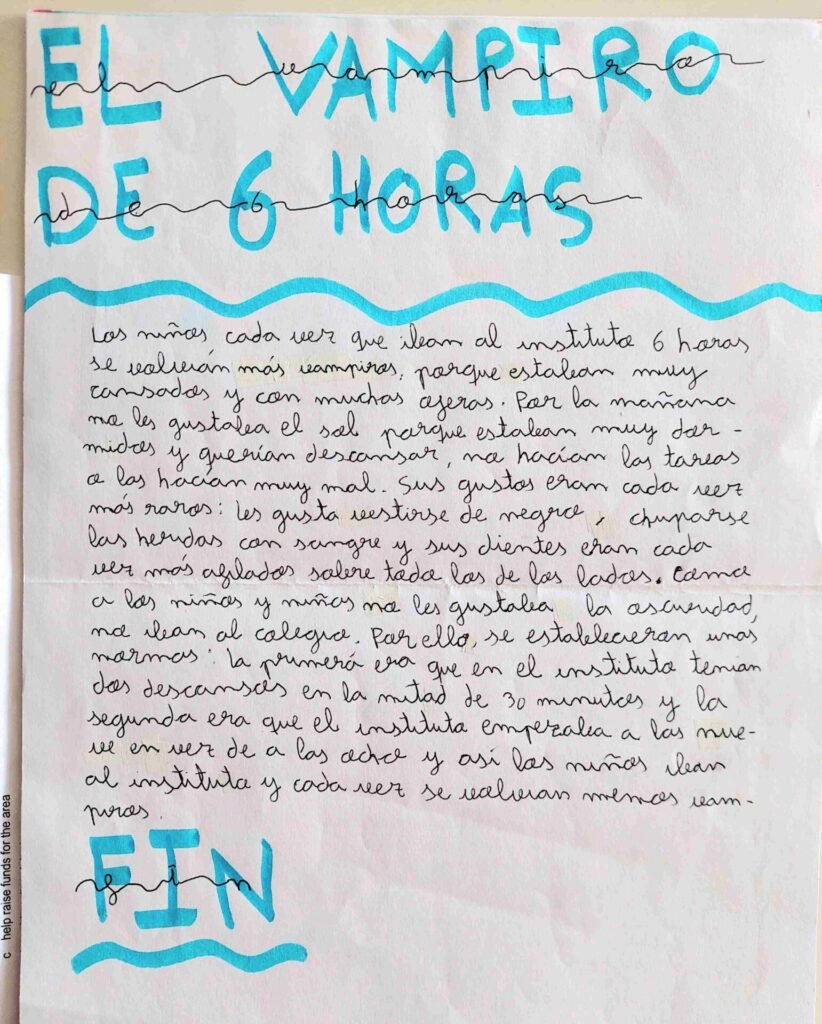 EL VAMPIRO
el vampiro
DE 6 HORAS
de 6 horas
Los niños cada vez que iban al instituto 6 horas
se volvían más vampiros, porque estaban muy
cansados y con muchas ojeras. Por la mañana
no les gustaba el sol porque estaban muy dor-
midos y querían descansar, no hacían las tareas
o las hacían muy mal. Sus gustos eran cada vez
más raros: les gusta vestirse de negro, chuparse
las heridas con sangre y sus dientes eran cada
vez más afilados sobre todo los de los lados. Como
a los niños y niñas no les gustaba la oscuridad,
no iban al colegio. Por ello, se establecieron unas
normas: la primera era que en el instituto tenían
dos descansos en la mitad de 30 minutos y la
segunda era que el instituto empezaba a las nue-
ve en vez de a las ocho y así los niños iban
al instituto y cada vez se volvían menos vam-
piros.
FIN
fin
c help raise funds for the area